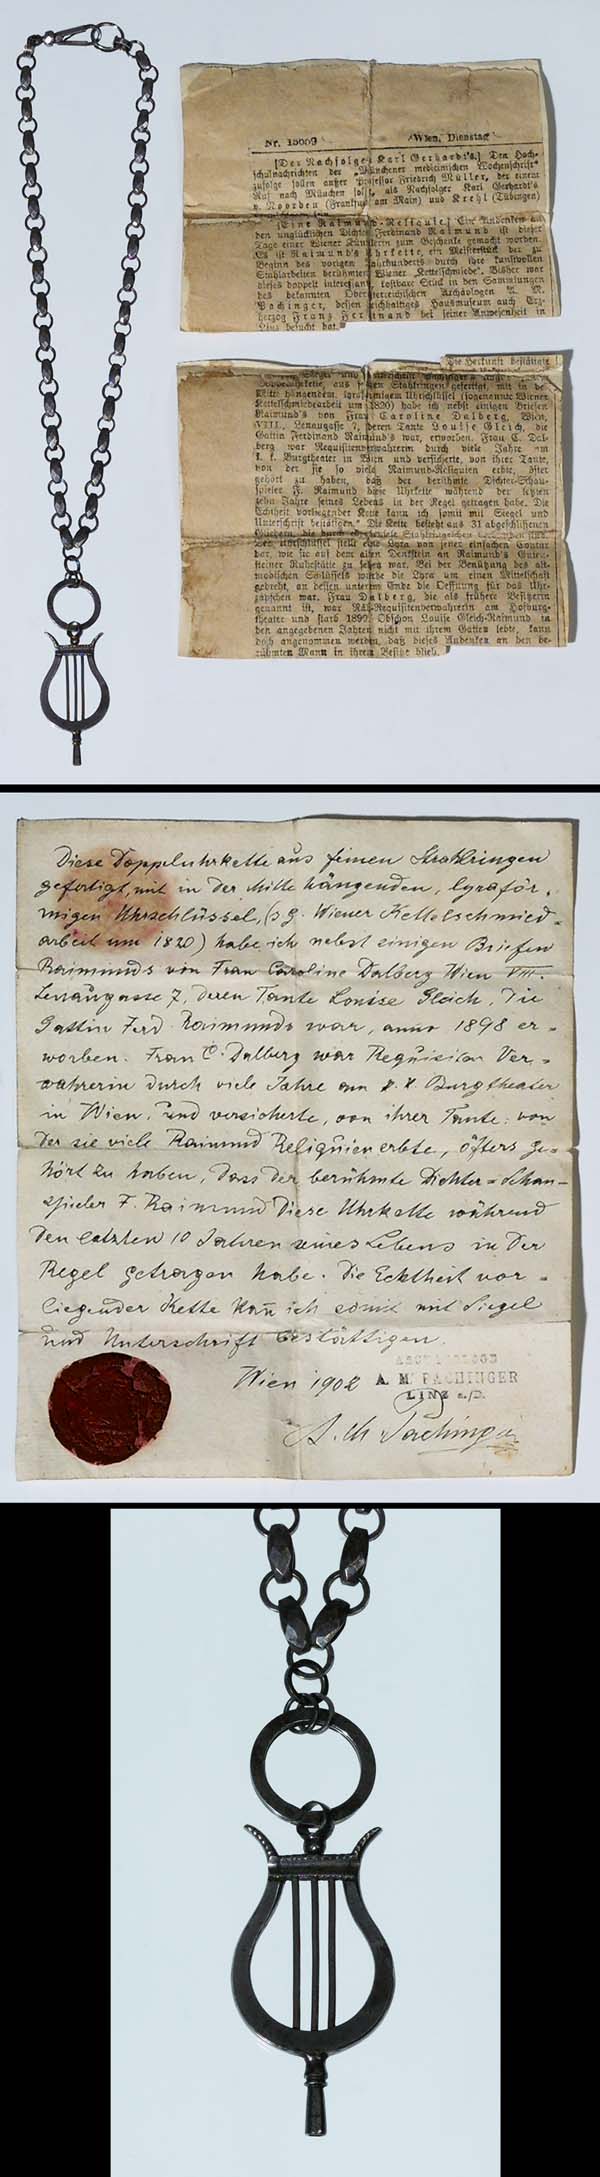 Nr. 15009 Wien, Dienstag
[Der Nachfolger Karl Gerhardt's.] Den Hoch-
schulnachrichten der "Münchener medicinischen Wochenschrift"
zufolge sollen außer Professor Friedrich Müller, der einem
Ruf nach München folgt, als Nachfolger Karl Gerhardt's
v. Noorden (Frankfurt am Main) und Krehl (Tübingen)
[Eine Raimund-Reliquie.] Ein Andenken an
den unglücklichen Dichter Ferdinand Raimund ist dieser
Tage einer Wiener Künstlerin zum Geschenke gemacht worden.
Es ist Raimund's Uhrkette, ein Meisterstück der zu
Beginn des vorigen Jahrhunderts durch ihre kunstvollen
Stahlarbeiten berühmten Wiener "Kettelschmiede". Bisher war
dieses doppelt interessante kostbare Stück in den Sammlungen
des bekannten Oberösterreichischen Archäologen A. M.
Pachinger, dessen reichhaltiges Hausmuseum auch Erz-
herzog Franz Ferdinand bei seiner Anwesenheit in
Linz besucht hat.
Die Herkunft bestätigte
Doppeluhrkette, aus feinen Stahlringen gefertigt, mit in der
Mitte hängendem, lyraförmigem Uhrschlüssel (sogenannte Wiener
Kettelschmiedearbeit um 1820) habe ich nebst einigen Briefen
Raimund's von Frau Caroline Dalberg, Wien,
VIII., Lenaugasse 7, deren Tante Louise Gleich, die
Gattin Ferdinand Raimund's war, erworben. Frau C. Dal-
berg war Requisitenverwahrerin durch viele Jahre am
k. k. Burgtheater in Wien und versicherte, von ihrer Tante,
von der sie so viele Raimund-Reliquien erbte, öfter
gehört zu haben, daß der berühmte Dichter-Schau-
spieler F. Raimund diese Uhrkette während der letzten
zehn Jahre seines Lebens in der Regel getragen habe. Die
Echtheit vorliegender Kette kann ich somit mit Siegel und
Unterschrift bestätigen." Die Kette besteht aus 31 abgeschliffenen
Gliedern, die durch
Der Uhrschlüssel stellt eine Lyra von jener einfachen Contur
dar, wie sie auf dem alten Denkstein an Raimund's Guten-
steiner Ruhestätte zu sehen war. Bei der Benützung des alt-
modischen Schlüssels wurde die Lyra um einen Mittelschaft
gedreht, an dessen unterem Ende die Oeffnung für das Uhr-
zäpfchen war. Frau Dalberg, die als frühere Besitzerin
genannt ist, war Requisitenverwahrerin am Hofburg-
theater und starb 1899. Obschon Louise Gleich-Raimund in
den angegebenen Jahren nicht mit ihrem Gatten lebte, kann
doch angenommen werden, daß dieses Andenken an den be-
rühmten Mann in ihrem Besitze blieb.
Diese Doppeluhrkette aus feinen Stahlringen
gefertigt, mit in der Mitte hängenden, lyraför-
migen Uhrschlüssel, (s.g. Wiener Kettelschmied-
arbeit um 1820) habe ich nebst einigen Briefen
Raimunds von Frau Caroline Dalberg Wien VIII.
Lenaugasse 7, deren Tante Louise Gleich, die
Gattin Ferd. Raimunds war, anno 1898 er-
worben. Frau C. Dalberg war Requisiten Ver-
wahrerin durch viele Jahre am k. k. Burgtheater
in Wien, und versicherte, von ihrer Tante, von
der sie viele Raimund Reliquien erbte, öfters ge-
hört zu haben, dass der berühmte Dichter-Schau-
spieler F. Raimund diese Uhrkette während
den letzten 10 Jahren seines Lebens in der
Regel getragen habe. Die Echtheit vor-
liegender Kette kan̄ ich somit mit Siegel
und Unterschrift bestättigen.
Wien 1902
ARCHÄOLOGE
A. M. PACHINGER
LINZ a./D.
A. M. Pachinger